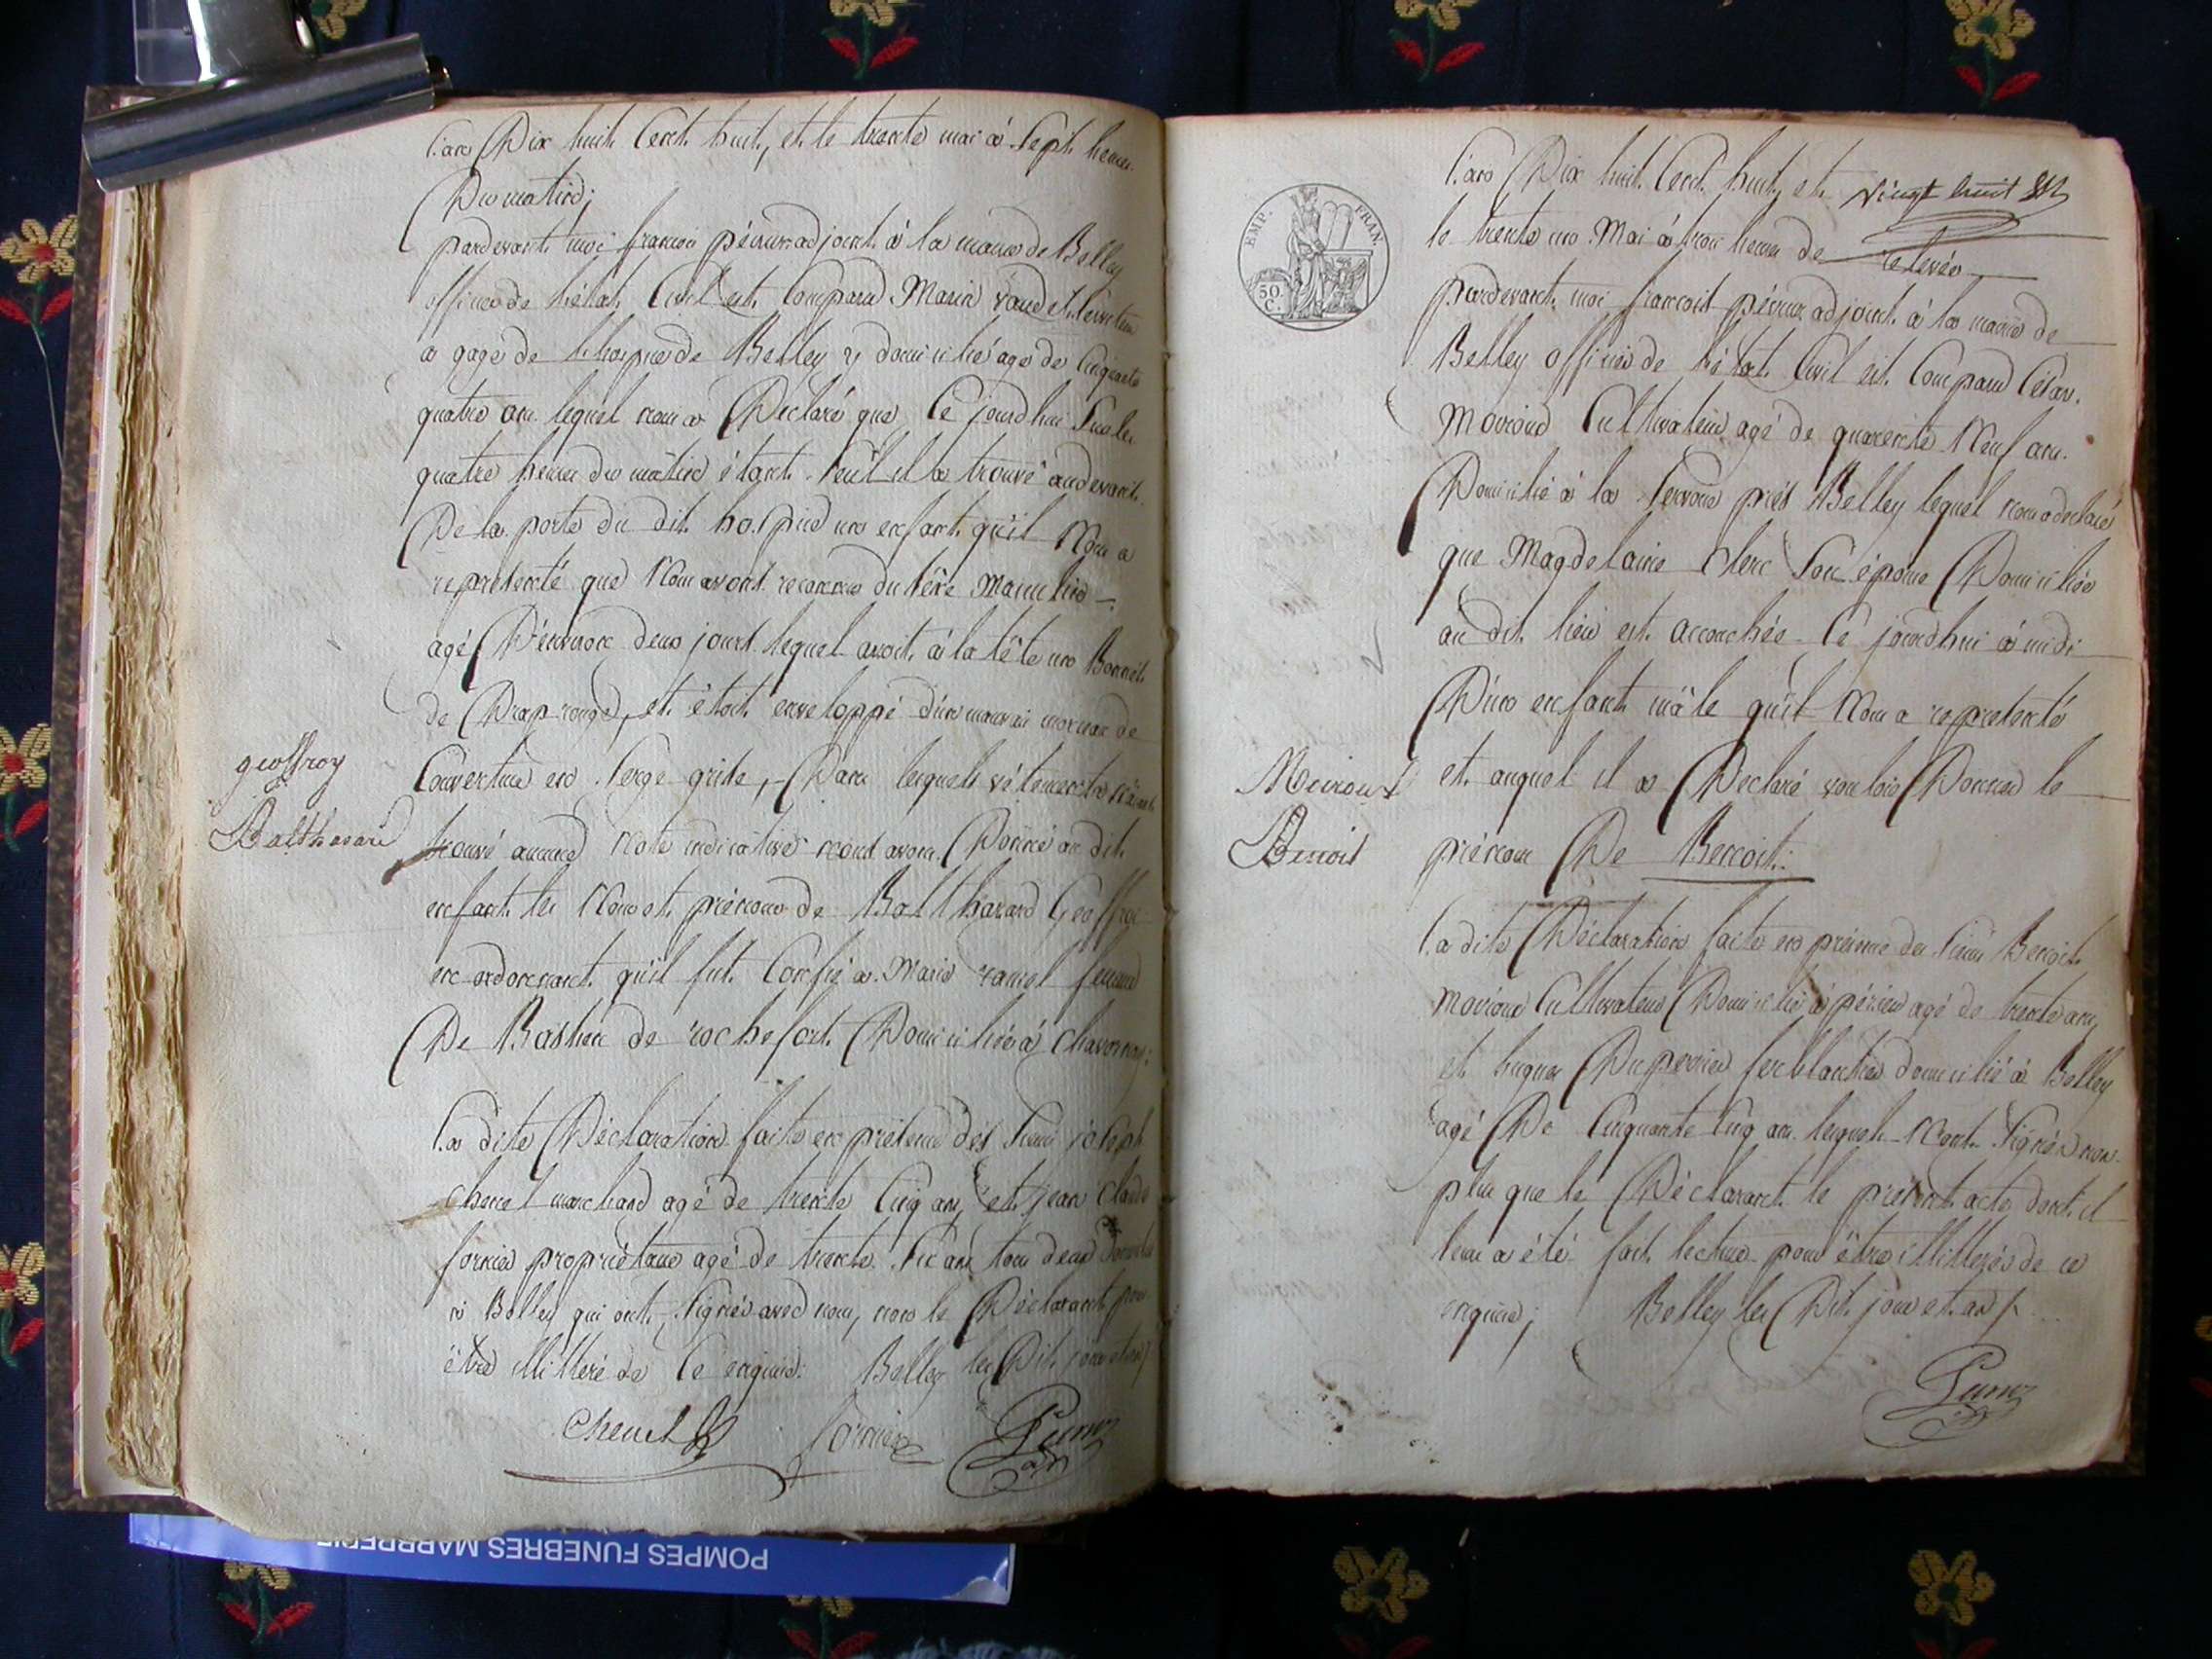 L'an Dix huit Cent huit, et le trente mai à Sept heures
Du matin;
pardevant moi françois pévrux adjoint à la mairie de Belley
officier de l'état Civil est Comparu Marin
a gage de l'hospice de Belley y domicilié agé de Cinquante
quatre ans lequel nous a Declaré que Ce jourd'hui Sur les
quatre heures du matin étant Seul il a trouvé audevant
De la porte du dit hospice un enfant qu'il Nous a
représenté que Nous avons reconnu du Séxe Masculin
agé D'environ deux jours lequel avoit à la tête un Bonnet
de Drap rouge, et étoit enveloppé d'un mauvais morceau de
geoffroy
Balthazard
Couverture en Serge grise, Dans lesquels vêtements n'ayant
trouvé aucune Note indicative nous avons Donné au dit
enfant les Nom et prénom de Balthazard Geoffroi
en ordonnant qu'il fut Confié à Marie femme
De Bastien de rochefort Domiciliée à Chavornay:
La dite Déclaration faite en présence des Sieurs joseph
Chenel marchand agé de trente Cinq ans, et jean Claude
fornier propriétaire agé de trente Six ans tous deux
à Belley qui ont Signés avec nous, non le Déclarant pour
être illitéré de Ce enquis: Belley les Dit jour et an
Chenel fornier
EMP. FRAN.
50 C.
L'an Dix huit Cent huit, et
vingt huit
le trente un Mai à trois heures de relevée
pardevant moi françois pévrux adjoint à la mairie de
Belley officier de l'état Civil est Comparu César
Moiroud Cultivateur agé de quarente Neuf ans
Domicilié à la près Belley lequel nous a declaré
que Magdelaine Clerc Son épouse Domiciliée
au dit lieu est accouchée Ce jourd'hui à midi
D'un enfant mâle qu'il Nous a représenté
Moiroud
Benoit
et auquel il a Declaré vouloir Donner le
prénom De Benoit:
La dite Déclaration faite en présence des Sieurs Benoit
Moiroud Cultivateur Domicilié à agé de trente ans,
et hugues Duperrier ferblantier domicilié à Belley
agé De Cinquante Cinq ans lesquels N'ont Signés non
plus que le Déclarant le présent acte dont il
leur a été fait lecture pour être illitérés de ce
enquis; Belley les Dit jour et an